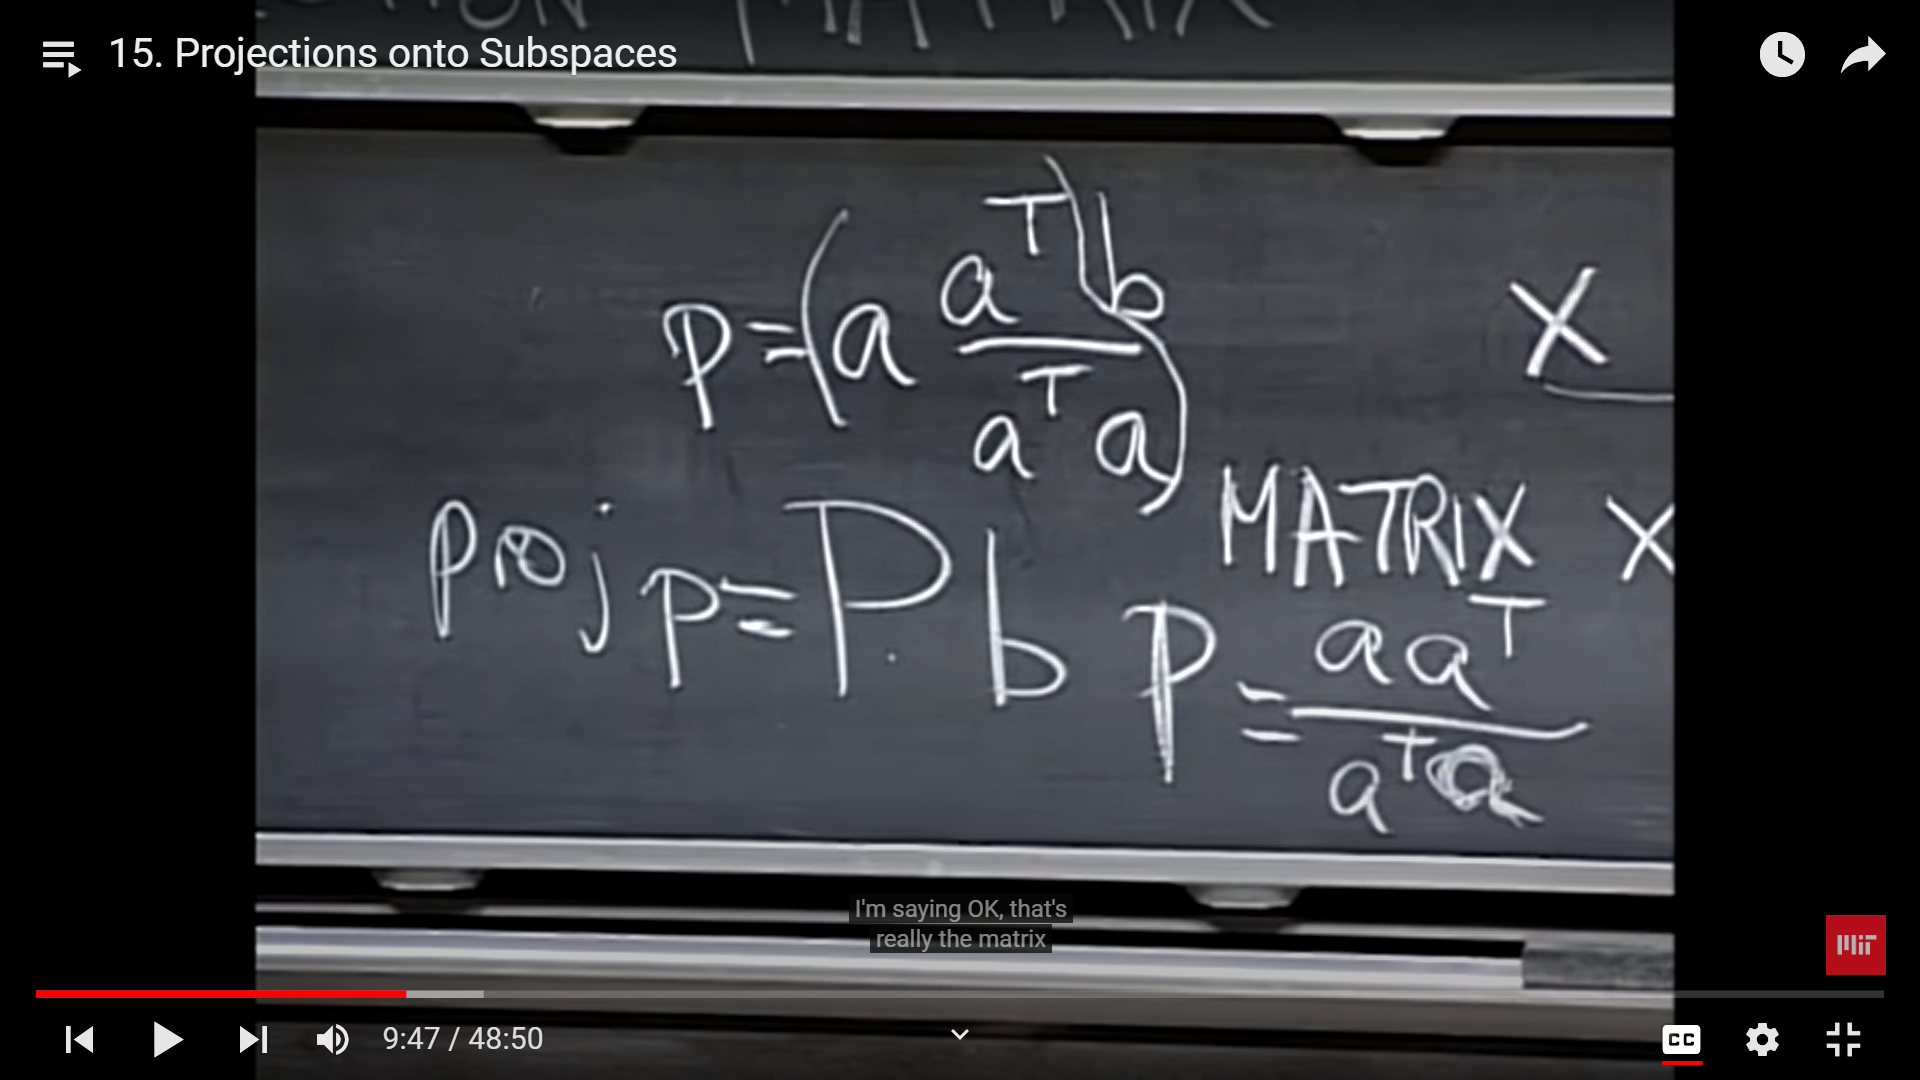 15. Projections onto Subspaces
MATRIX
p = (a aᵀ) b
aᵀ a
X
MATRIX X
proj p = P b
P = aaᵀ
aᵀa
I'm saying OK, that's
really the matrix
MIT
9:47 / 48:50
CC